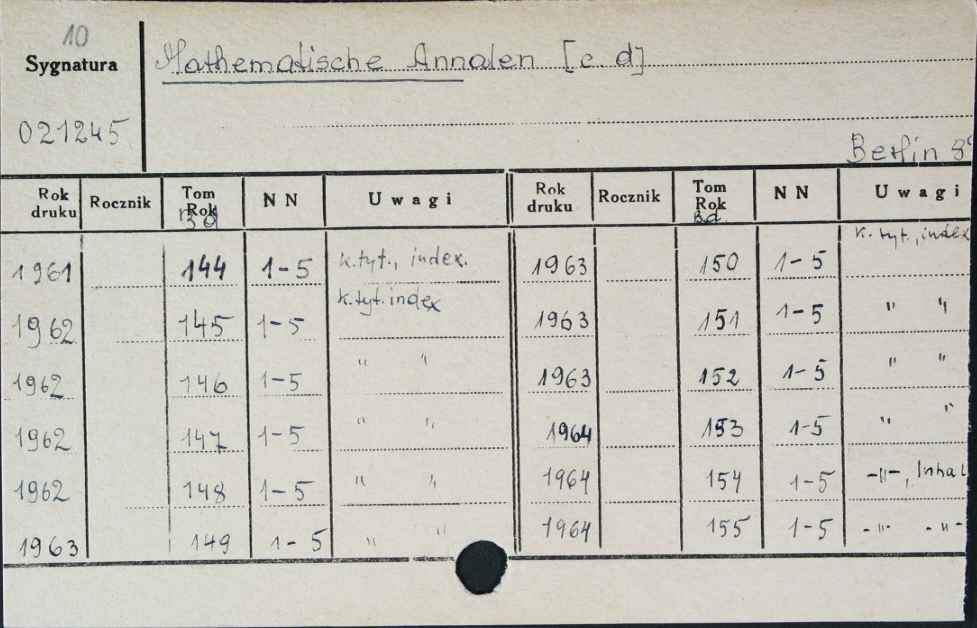 10
Sygnatura
Mathematische Annalen [c. d]
021245
Berlin 8°
Rok druku Rocznik Tom Rok Bd NN Uwagi Rok druku Rocznik Tom Rok Bd. NN Uwagi
1961 144 1-5 k.tyt., index. 1963 150 1-5 k. tyt., index
1962 145 1-5 k.tyt. index 1963 151 1-5 " "
1962 146 1-5 " " 1963 152 1-5 " "
1962 147 1-5 " " 1964 153 1-5 " "
1962 148 1-5 " " 1964 154 1-5 -"-, Inhal
1963 149 1-5 " " 1964 155 1-5 -"- -"-